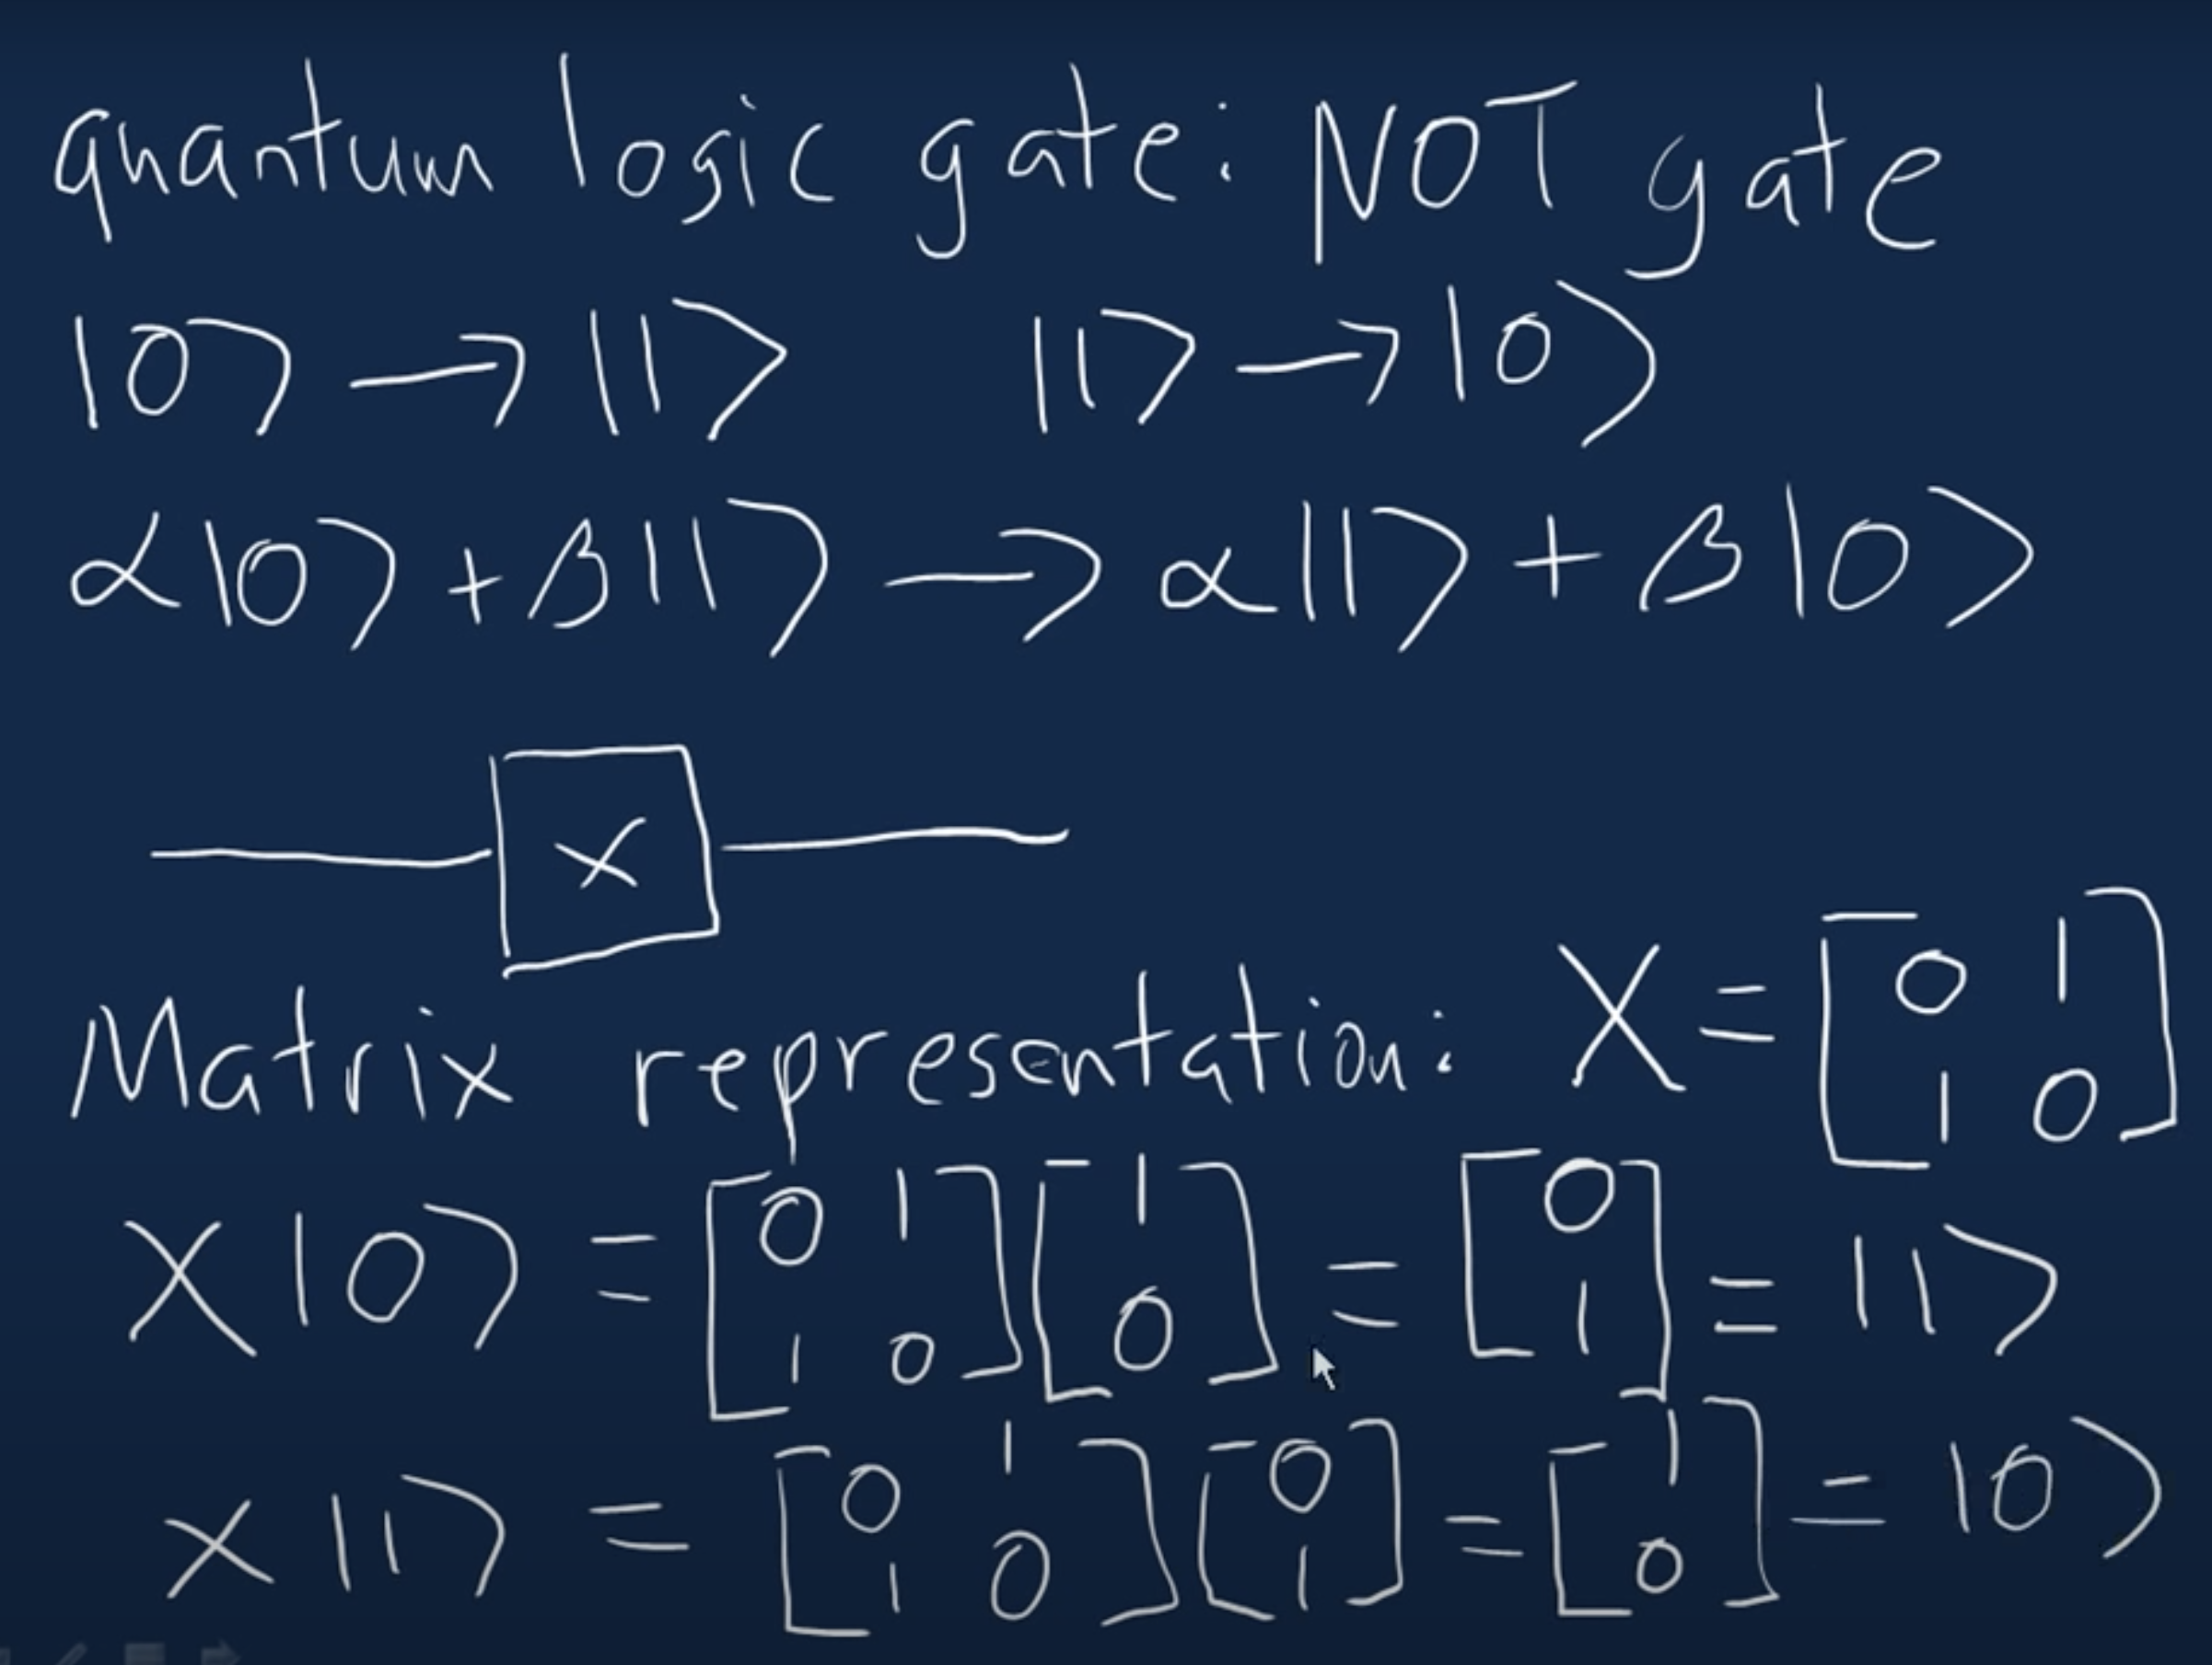 quantum logic gate: NOT gate
|0⟩ → |1⟩    |1⟩ → |0⟩
α|0⟩ + β|1⟩ → α|1⟩ + β|0⟩
X
Matrix representation: X = [0 1; 1 0]
X|0⟩ = [0 1; 1 0] [1; 0] = [0; 1] = |1⟩
X|1⟩ = [0 1; 1 0] [0; 1] = [1; 0] = |0⟩